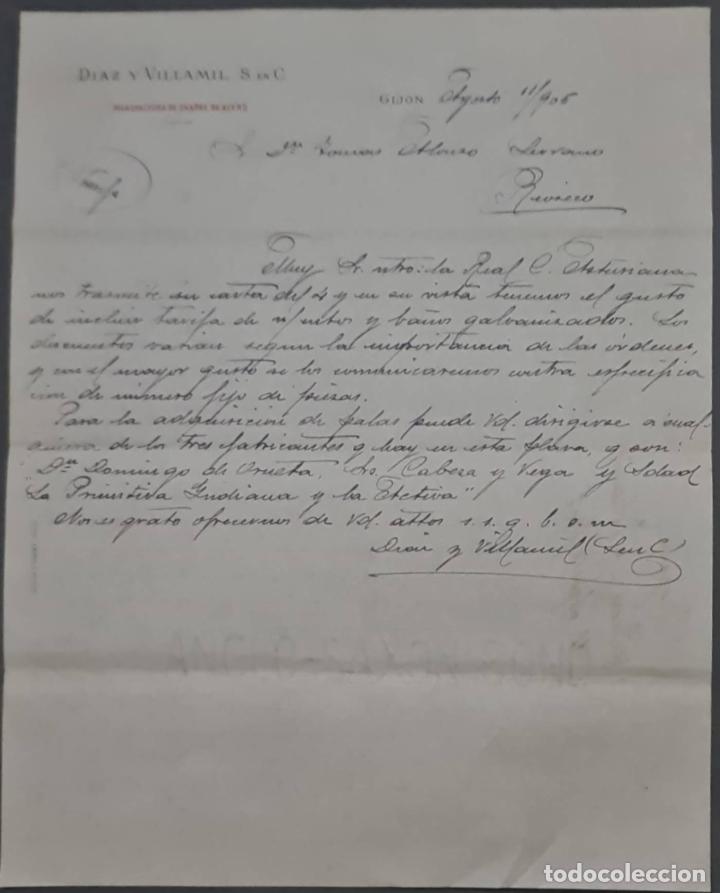 DIAZ Y VILLAMIL S EN C
GIJON Agosto 11/905
S. Dn Tomas Alonso Serrano
Rioseco
Muy Sr. ntro: la Real C. Asturiana
nos trasmite su carta del 4 y en su vista tenemos el gusto
de incluir tarifa de y baños galvanizados. Los
descuentos varian segun la importancia de las órdenes,
y con el mayor gusto se los comunicaremos contra especifica
cion de número fijo de piezas.
Para la adquisicion de palas puede Vd. dirigirse a cual
quiera de los tres fabricantes q hay en esta plaza, q son:
Dn Domingo de Orueta, Srs. Cabeza y Vega y Sdad
"La Primitiva Indiana y la Efectiva"
Nos es grato ofrecernos de Vd. attos s. s. q. b. s. m
Diaz y Villamil (S en C)
todocoleccion